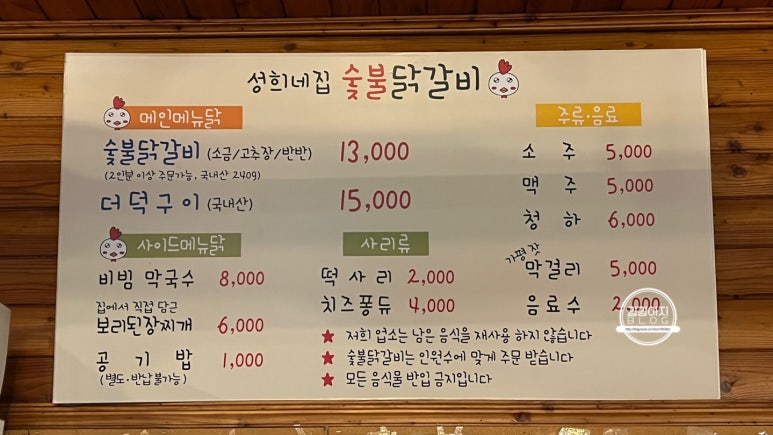 성희네집 숯불닭갈비
메인메뉴닭
숯불닭갈비 (소금/고추장/반반) 13,000
(2인분 이상 주문가능, 국내산 240g)
더덕구이 (국내산) 15,000
사이드메뉴닭
비빔 막국수 8,000
집에서 직접 담근
보리된장찌개 6,000
공 기 밥 1,000
(별도·반납불가능)
사리류
떡 사 리 2,000
치즈퐁듀 4,000
★ 저희 업소는 남은 음식을 재사용 하지 않습니다
★ 숯불닭갈비는 인원수에 맞게 주문 받습니다
★ 모든 음식물 반입 금지입니다
주류·음료
소 주 5,000
맥 주 5,000
청 하 6,000
가평 잣
막걸리 5,000
음료수 2,000
BLOG